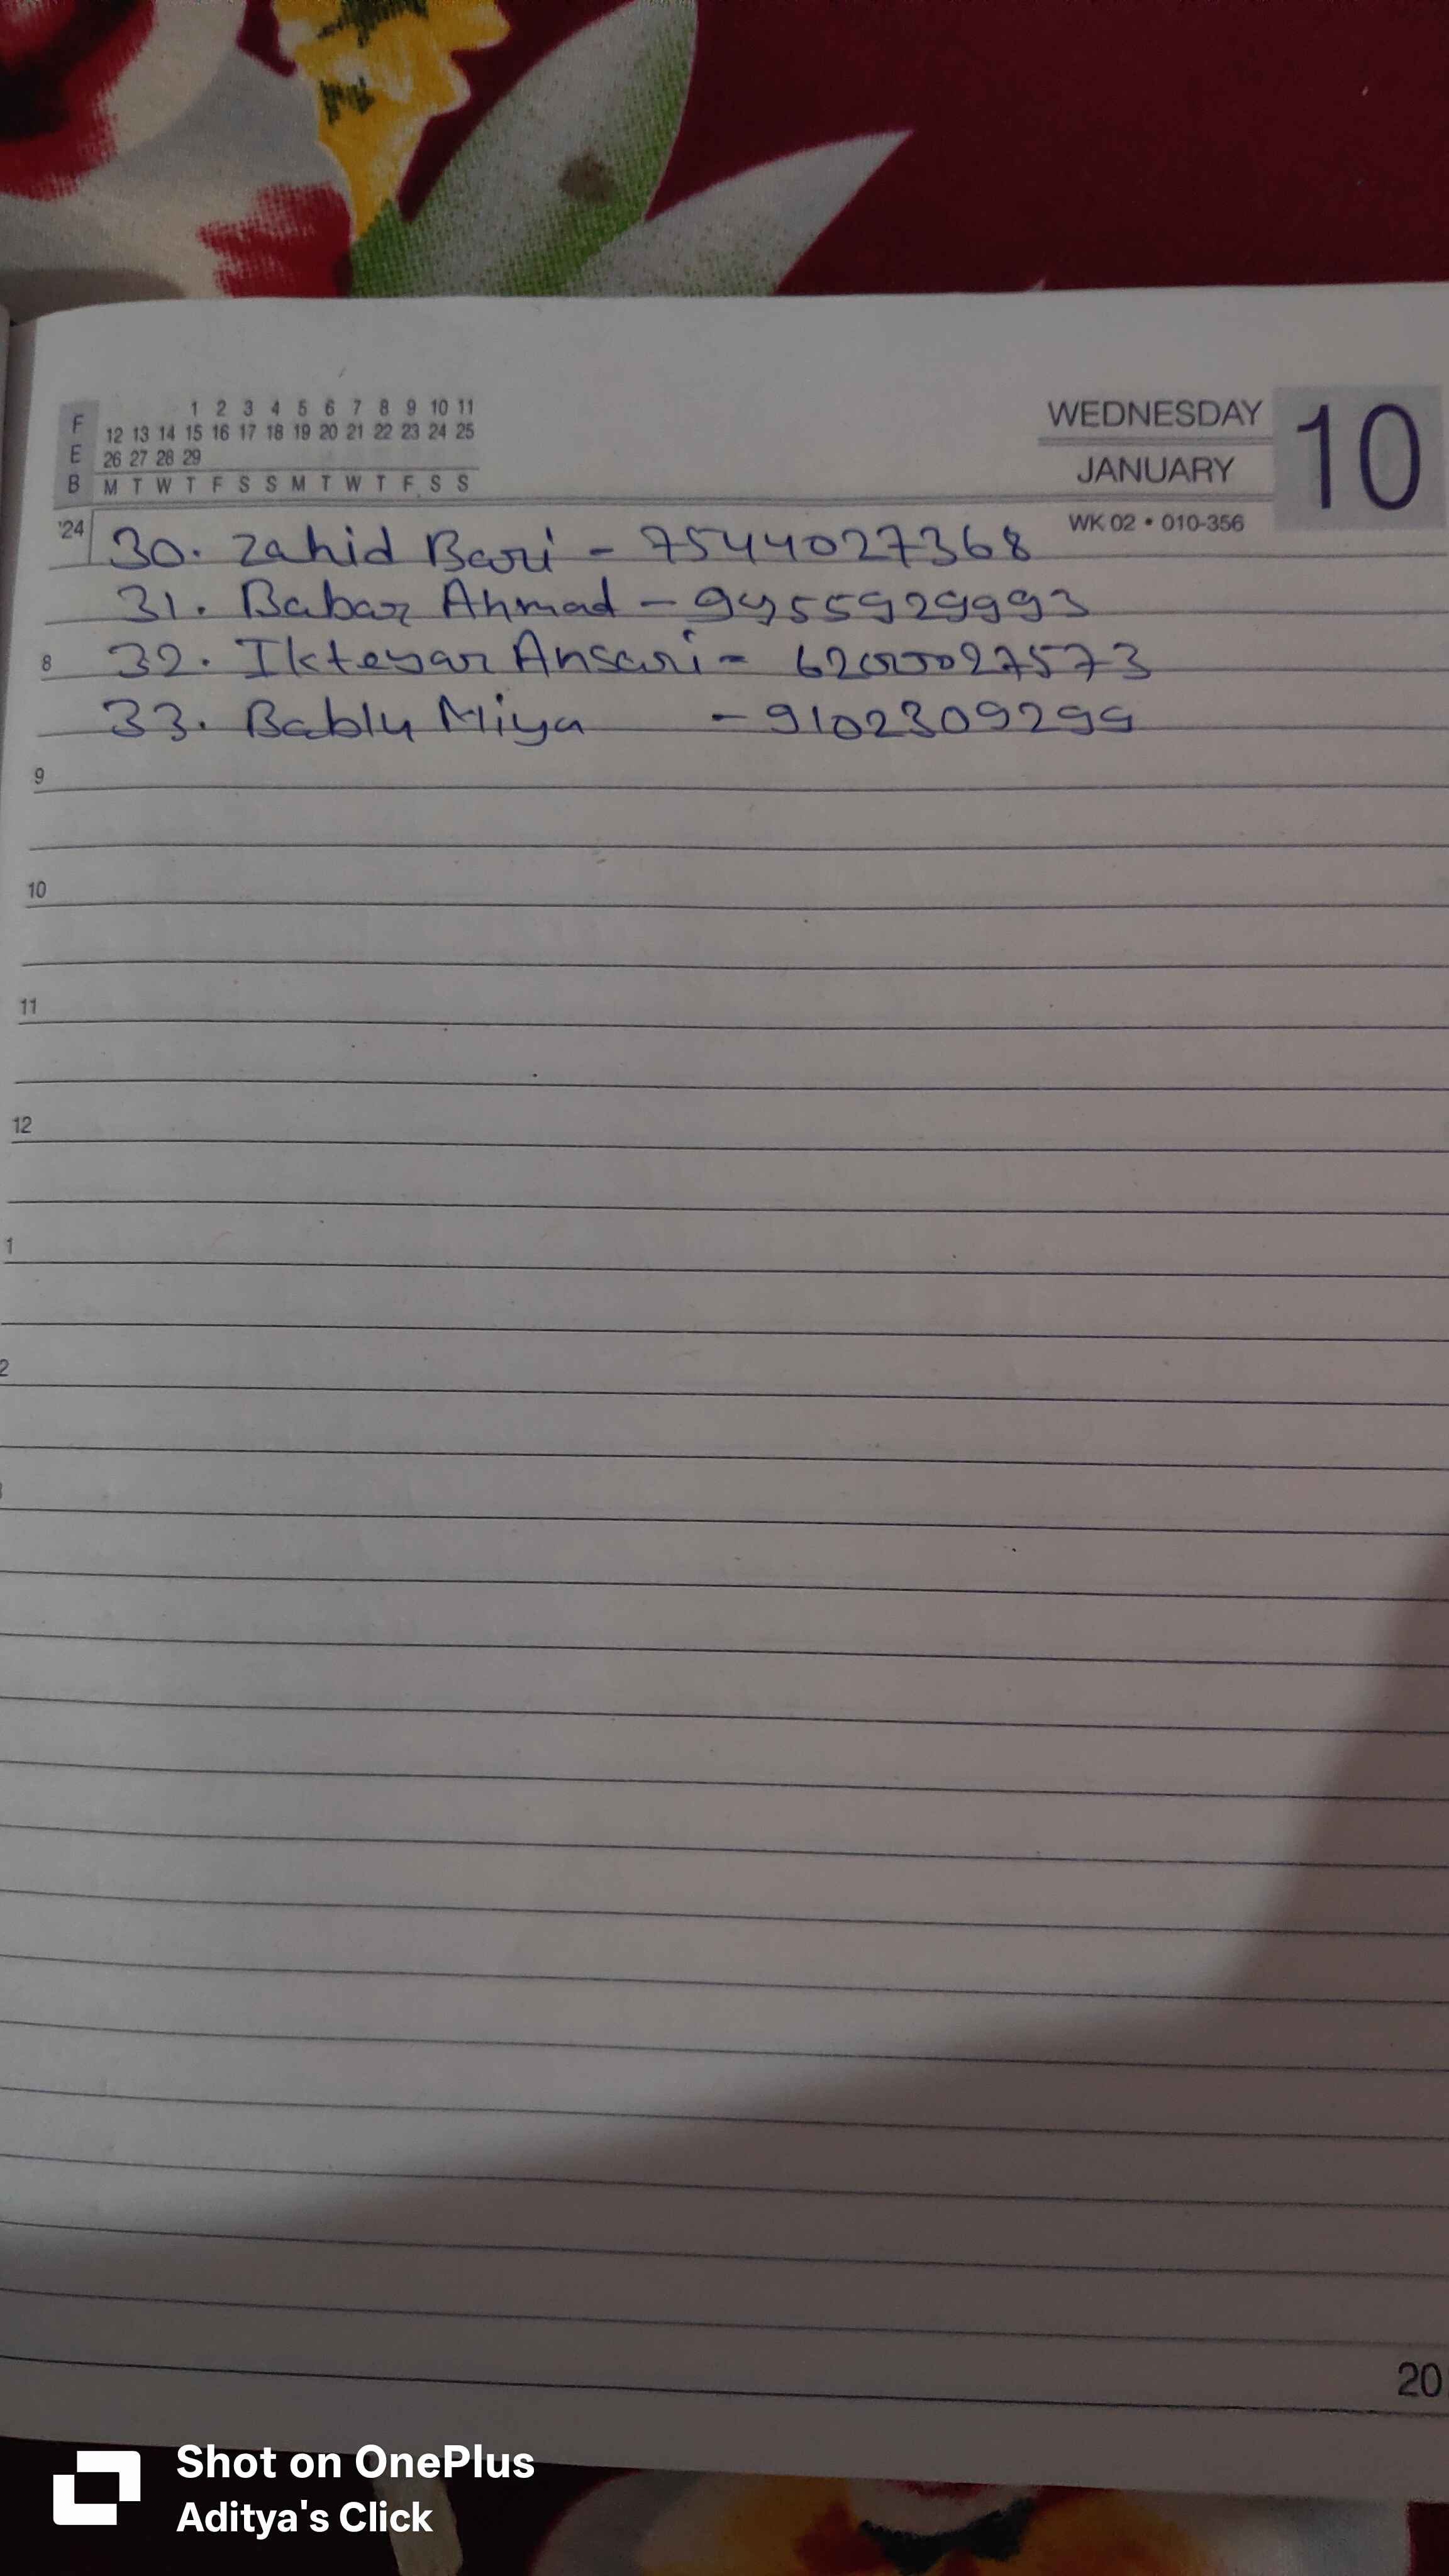 F 1 2 3 4 5 6 7 8 9 10 11
E 12 13 14 15 16 17 18 19 20 21 22 23 24 25
B 26 27 28 29
M T W T F S S M T W T F S S
'24
WEDNESDAY
JANUARY
10
WK 02 • 010-356
30. Zahid Bari - 7544027368
31. Babar Ahmad - 9955929993
8 32. Ikteyar Ansari -
33. Bablu Miya - 9102309299
9
10
11
12
1
2
20
Shot on OnePlus
Aditya's Click